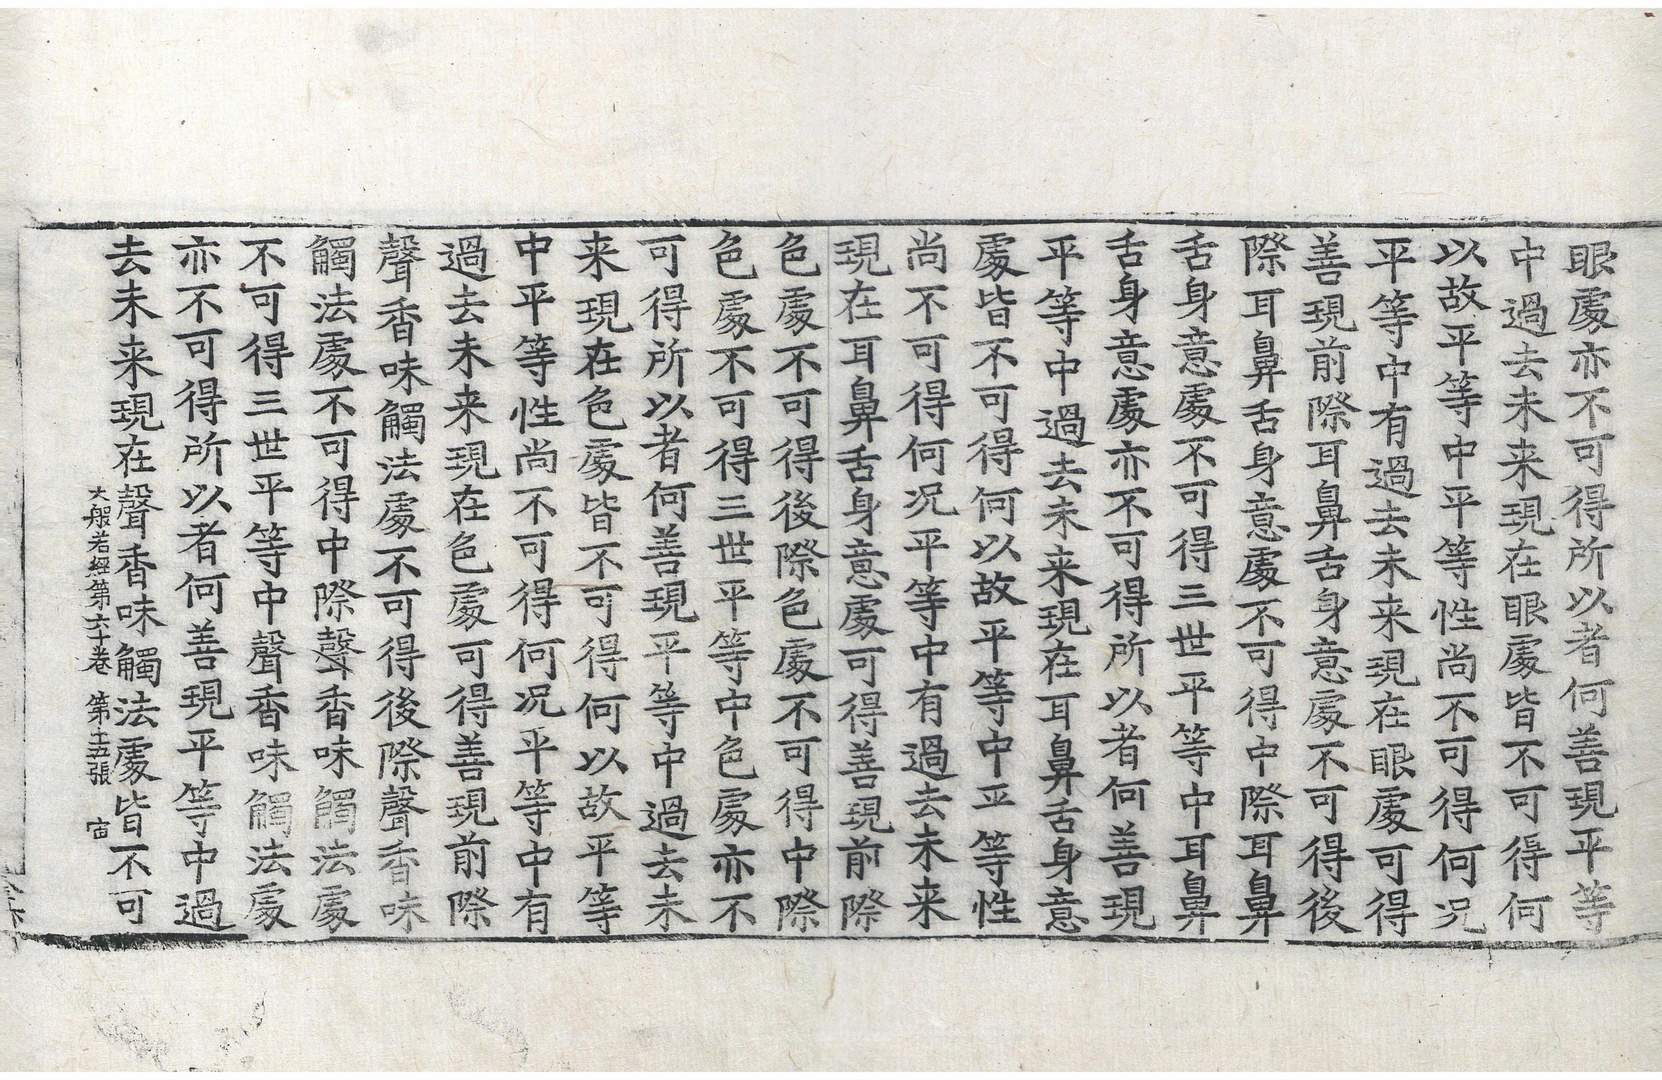 眼處亦不可得所以者何善現平等
中過去未来現在眼處皆不可得何
以故平等中平等性尚不可得何况
平等中有過去未来現在眼處可得
善現前際耳鼻舌身意處不可得後
際耳鼻舌身意處不可得中際耳鼻
舌身意處不可得三世平等中耳鼻
舌身意處亦不可得所以者何善現
平等中過去未来現在耳鼻舌身意
處皆不可得何以故平等中平等性
尚不可得何况平等中有過去未来
現在耳鼻舌身意處可得善現前際
色處不可得後際色處不可得中際
色處不可得三世平等中色處亦不
可得所以者何善現平等中過去未
来現在色處皆不可得何以故平等
中平等性尚不可得何况平等中有
過去未来現在色處可得善現前際
聲香味觸法處不可得後際聲香味
觸法處不可得中際聲香味觸法處
不可得三世平等中聲香味觸法處
亦不可得所以者何善現平等中過
去未来現在聲香味觸法處皆不可
大般若經第六十卷 第十五張 宙